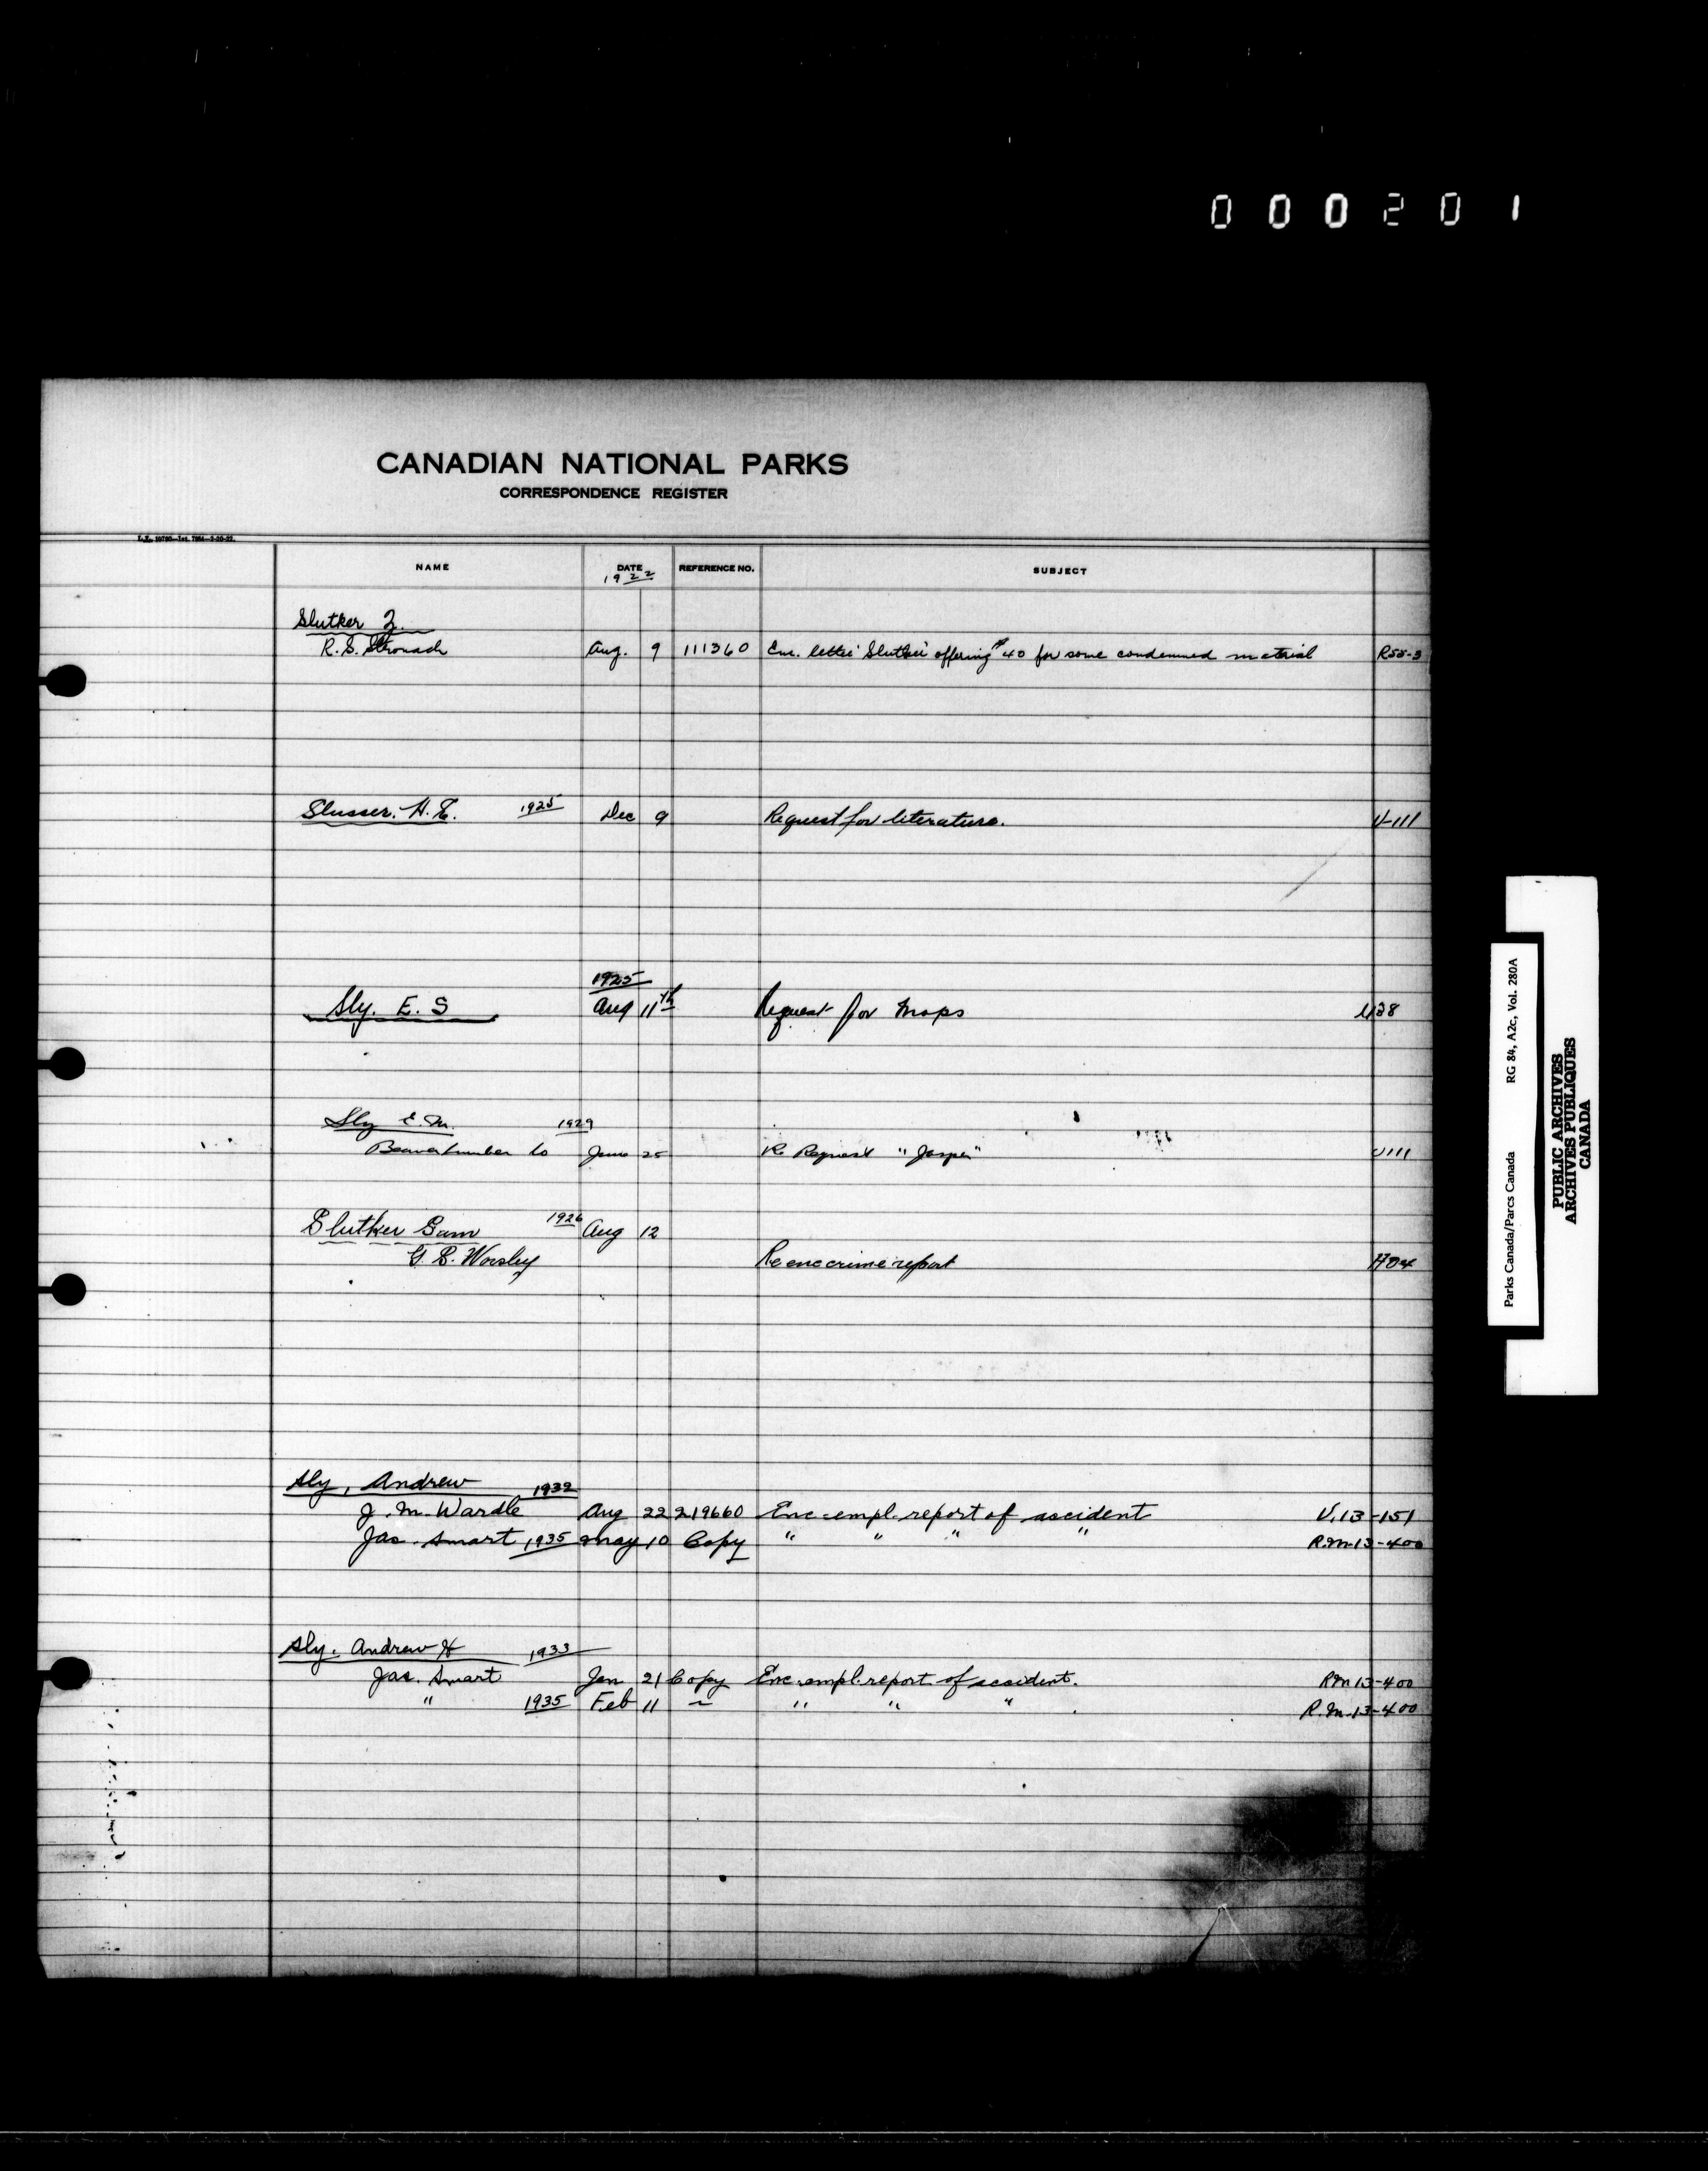 000201
CANADIAN NATIONAL PARKS
CORRESPONDENCE REGISTER
NAME DATE REFERENCE NO. SUBJECT
1922
Slutker Z.
R. S. Stronach Aug. 9 111360 Enc. letter Slutker offering $40 for some condemned material R55-3
Slusser. H. E. 1925 Dec 9 Request for literature. U-111
1925
Sly. E. S Aug 11th Request for Maps U38
Sly E. M. 1929
Beaver Lumber Co June 25 Re Request "Jasper" U111
Slutker Sam 1926 Aug 12
G. E. Worsley Re enc crime report
Sly, Andrew 1932
J. M. Wardle Aug 22 219660 Enc. empl. report of accident V.13-151
Jas. Smart 1935 May 10 Copy " " " " R.M-13-400
Sly. Andrew H 1933
Jas. Smart Jan 21 Copy Enc. empl. report of accident. RM13-400
" 1935 Feb 11 ~ " " " R.M.13-400
Parks Canada/Parcs Canada RG 84, A2c, Vol. 280A
PUBLIC ARCHIVES
ARCHIVES PUBLIQUES
CANADA